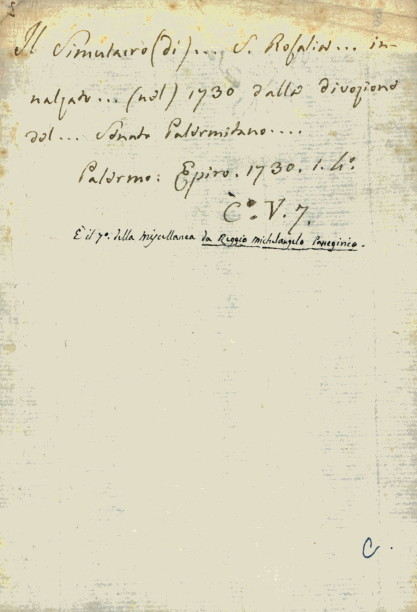 Il Simulacro (di).... S. Rosalia... in-
nalzato... (nel) 1730 dalla divozione
del... Senato Palermitano....
Palermo: Epiro. 1730. 1. 4º.
Cº. V. 7.
È il 7º. della miscellanea da Reggio Michelangelo Panegirico.
C.